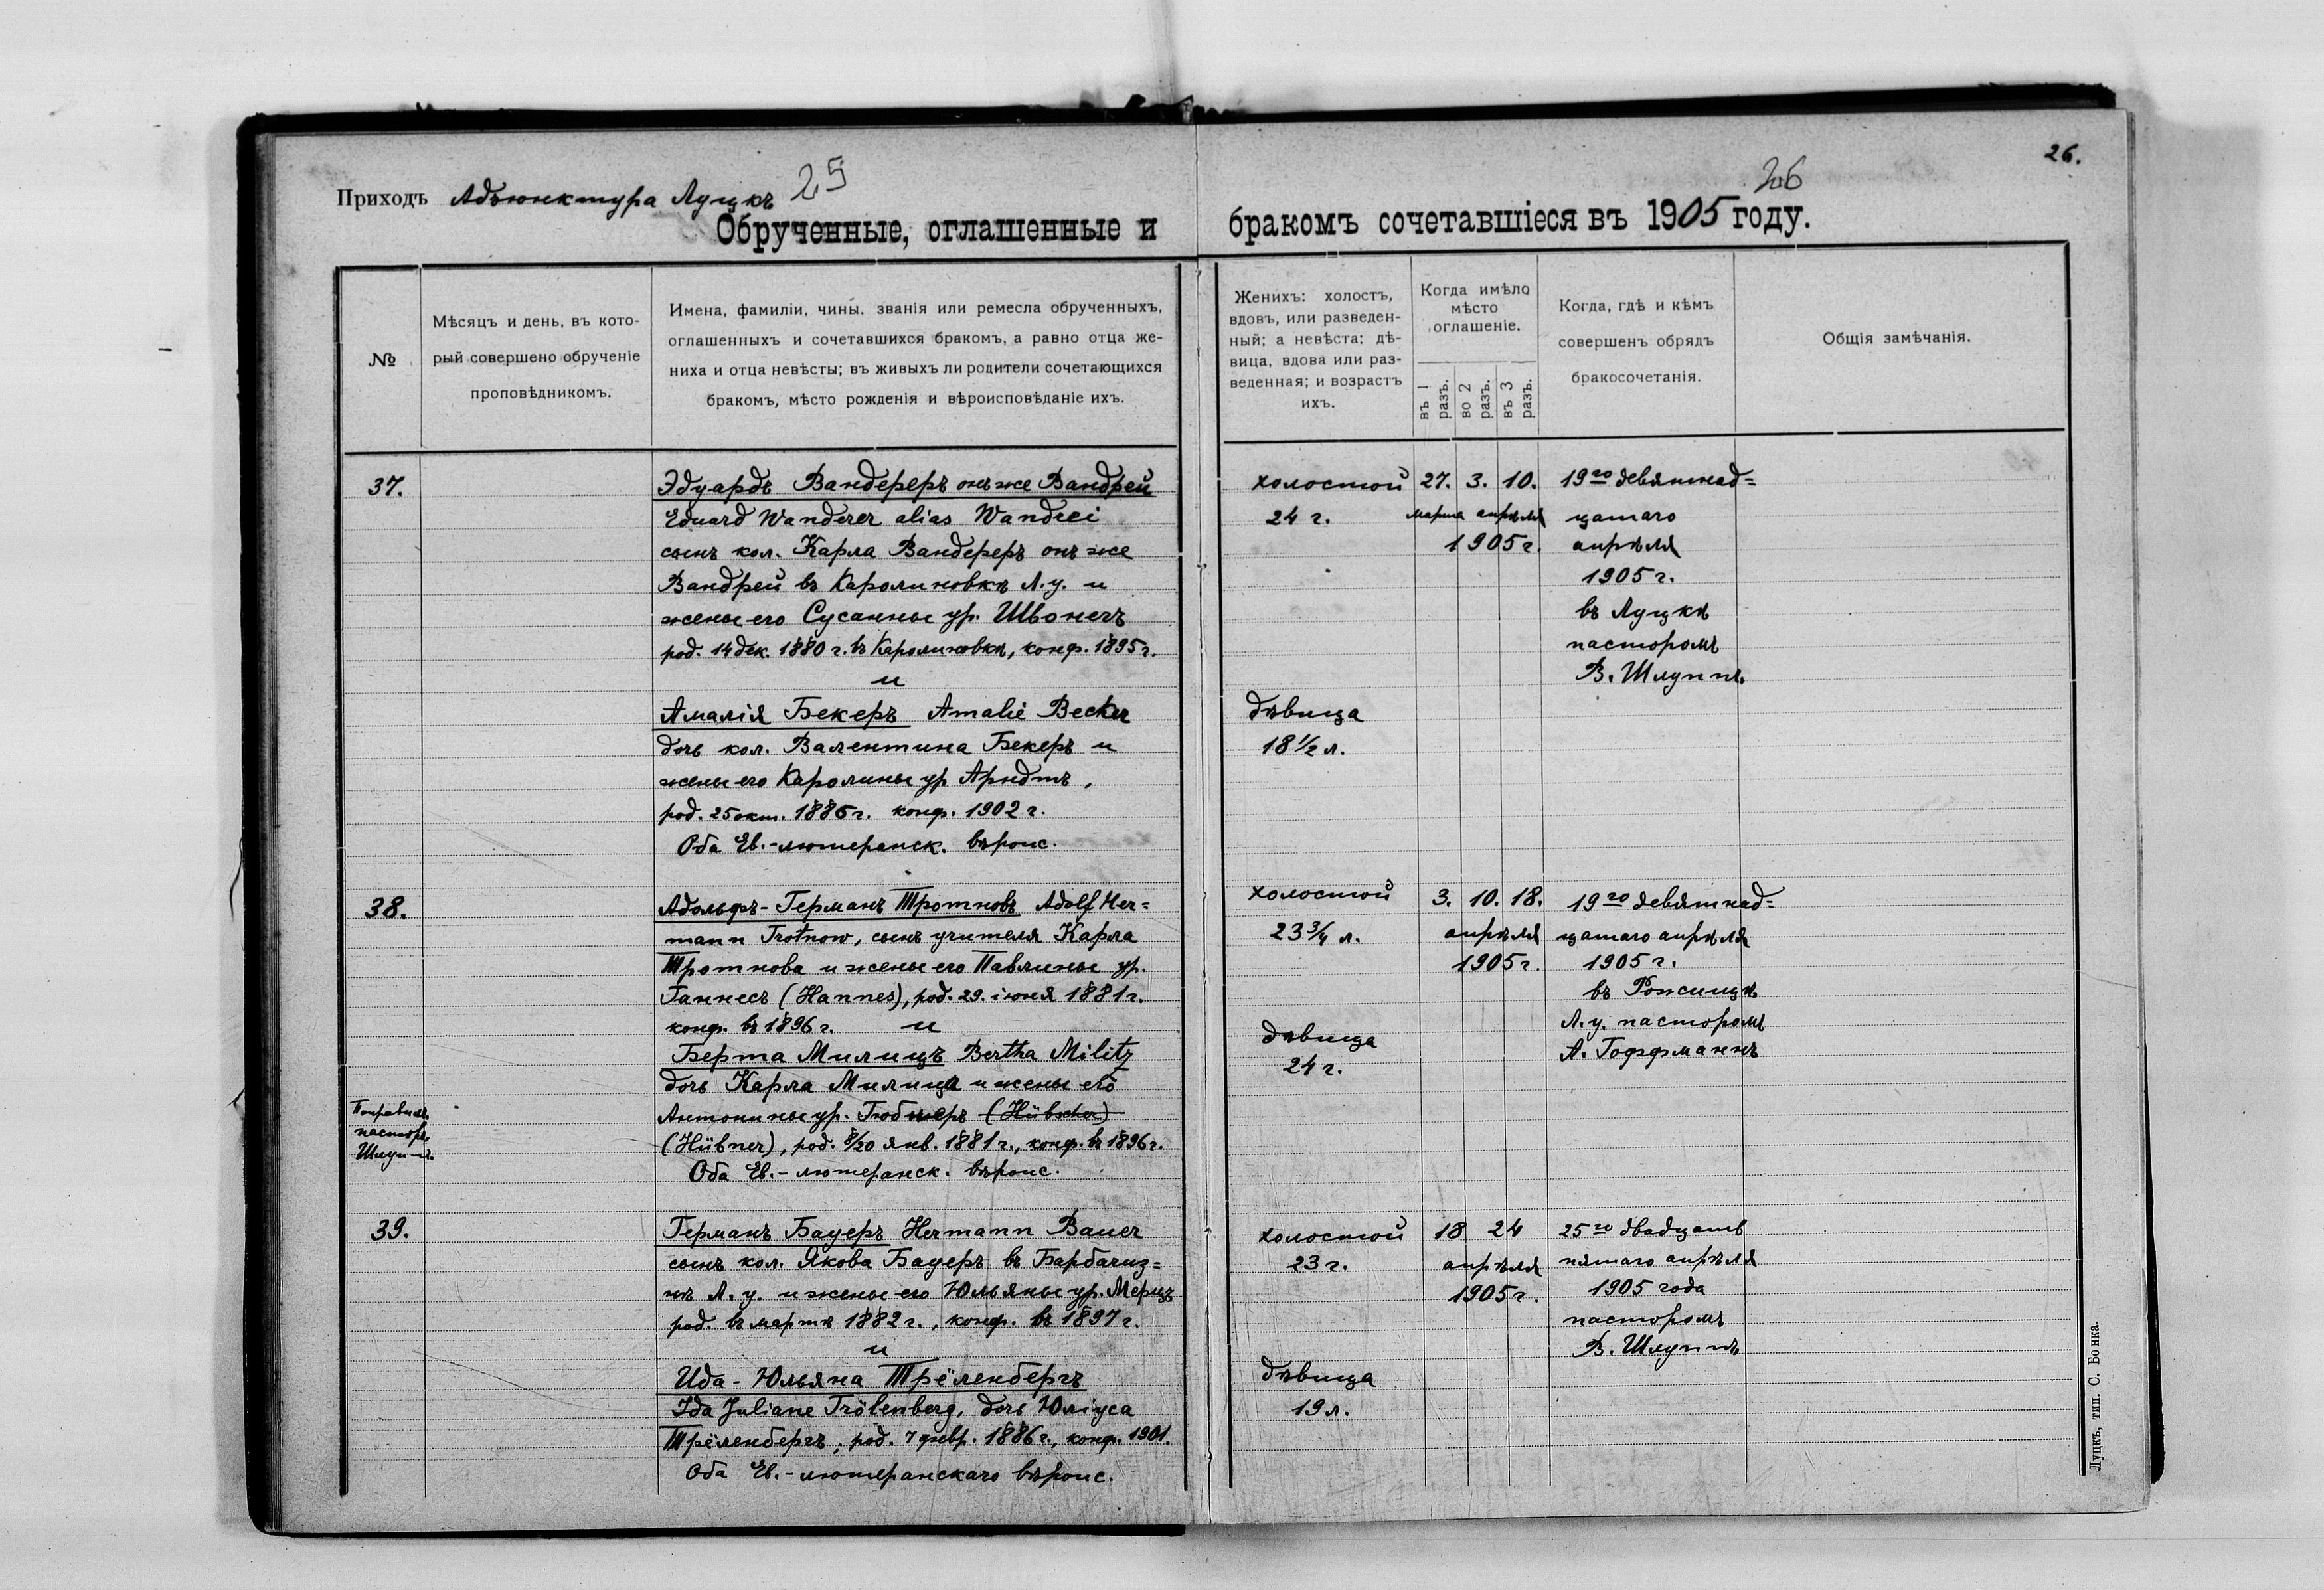 26.
Приходъ Адъюнктура Луцкъ 25
26
Обрученные, оглашенные и бракомъ сочетавшіеся въ 1905 году.
№
Мѣсяцъ и день, въ кото-
рый совершено обрученіе
проповѣдникомъ.
Имена, фамиліи, чины. званія или ремесла обрученныхъ,
оглашенныхъ и сочетавшихся бракомъ, а равно отца же-
ниха и отца невѣсты; въ живыхъ ли родители сочетающихся
бракомъ, мѣсто рожденія и вѣроисповѣданіе ихъ.
Женихъ: холостъ,
вдовъ, или разведен-
ный; а невѣста: дѣ-
вица, вдова или раз-
веденная; и возрастъ
ихъ.
Когда имѣло
мѣсто
оглашеніе.
въ 1 разъ.
во 2 разъ.
въ 3 разъ.
Когда, гдѣ и кѣмъ
совершенъ обрядъ
бракосочетанія.
Общія замѣчанія.
37.
Эдуардъ Вандереръ онъ же Вандрей
Eduard Wanderer alias Wandrei
сынъ кол. Карла Вандереръ онъ же
Вандрей въ Каролиновкѣ Л. у. и
жены его Сусанны ур. Швонекъ
род. 14 дек. 1880 г. въ Каролиновкѣ, конф. 1895 г.
и
Амалія Бекеръ Amalie Becker
дочь кол. Валентина Бекеръ и
жены его Каролины ур. Арндтъ,
род. 25 окт. 1886 г. конф. 1902 г.
Оба Ев.-лютеранск. вѣроис.
холостой
24 г.
дѣвица
18 1/2 л.
27. 3. 10.
марта апрѣля
1905 г.
19го девятнад=
цатаго
апрѣля
1905 г.
въ Луцкѣ
пасторомъ
В. Шлуппъ.
38.
Адольфъ-Германъ Тротновъ Adolf Her=
mann Trotnow, сынъ учителя Карла
Тротнова и жены его Павлины ур.
Ганнесъ (Hannes), род. 29. іюня 1881 г.
конф. въ 1896 г. и
Берта Милицъ Bertha Militz
дочь Карла Милица и жены его
Антонины ур. Гюбнеръ (Hübscher)
(Hübner), род. 8/20 янв. 1881 г., конф. въ 1896 г.
Оба Ев.-лютеранск. вѣроис.
пасторъ
Шлуппъ.
холостой
23 3/4 л.
дѣвица
24 г.
3. 10. 18.
апрѣля
1905 г.
19го девятнад=
цатаго апрѣля
1905 г.
въ Рожищѣ
Л. у. пасторомъ
А. Гоффманнъ
39.
Германъ Бауеръ Hermann Bauer
сынъ кол. Якова Бауеръ въ
Л. у. и жены его Юльяны ур. Мерцъ
род. въ мартѣ 1882 г., конф. въ 1897 г.
и
Ида-Юльяна Трёленбергъ
Ida Juliane Trölenberg, дочь Юліуса
Трёленбергъ, род. 7 февр. 1886 г., конф. 1901.
Оба Ев.-лютеранскаго вѣроис.
холостой
23 г.
дѣвица
19 л.
18 24
апрѣля
1905 г.
25го двадцать
пятаго апрѣля
1905 года
пасторомъ
В. Шлуппъ
Луцкъ, тип. С. Бонка.